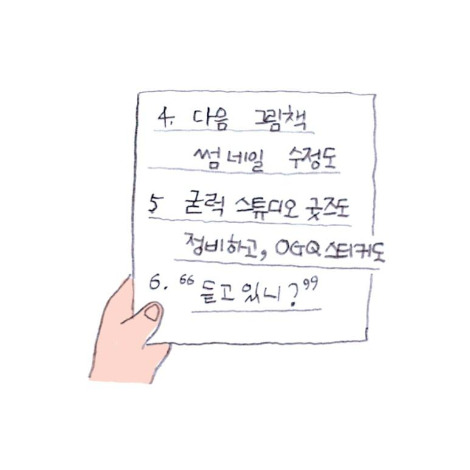 4. 다음 그림책
썸네일 수정도
5 굳럭 스튜디오 굿즈도
정비하고, OGQ 스티커도
6. “듣고 있니?”